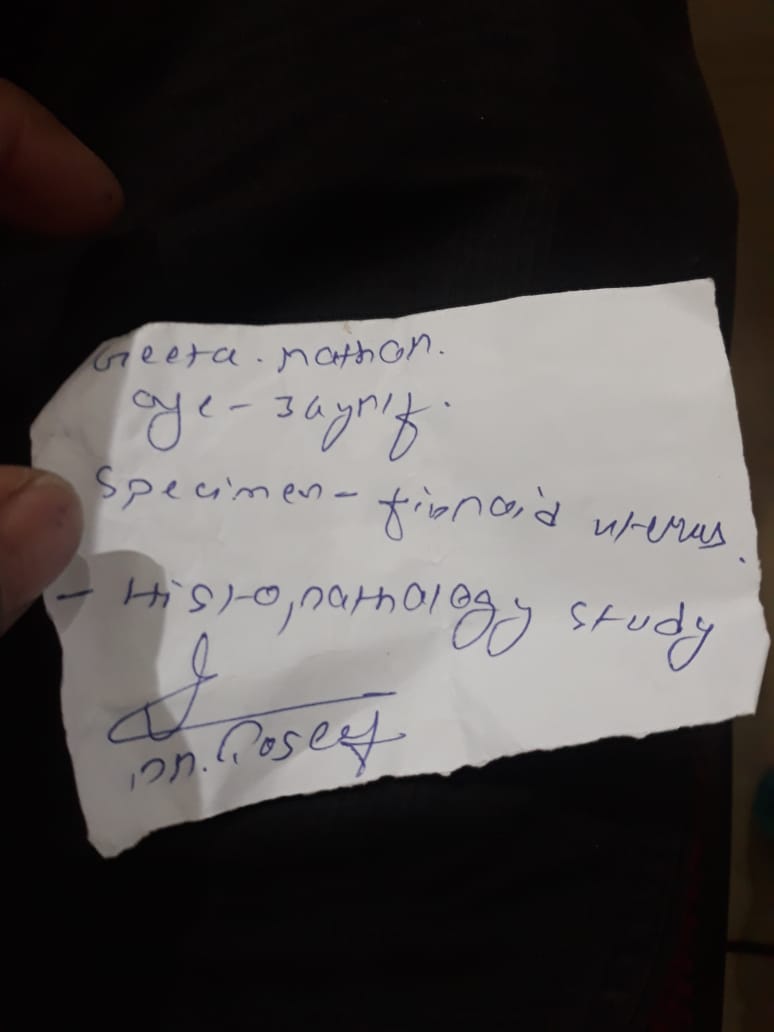 Geeta. nathan.
age - 39 yr/f.
Specimen - fibroid uterus.
- Histopathology study
Dr.